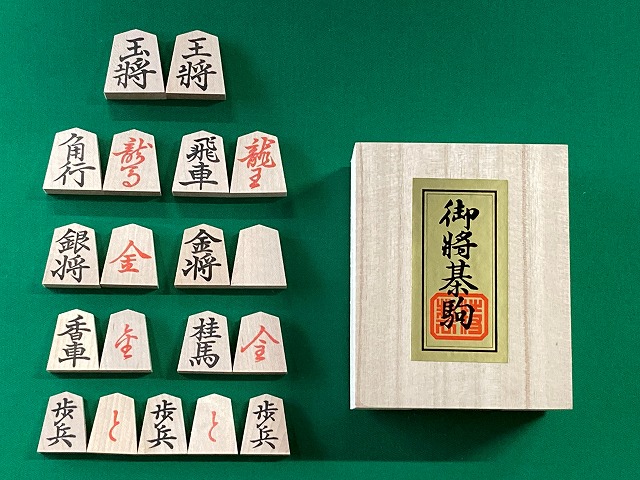 玉將
王將
角行
龍馬
飛車
龍王
銀将
金
金将
香車
桂馬
歩兵
と
歩兵
と
歩兵
御將棊駒